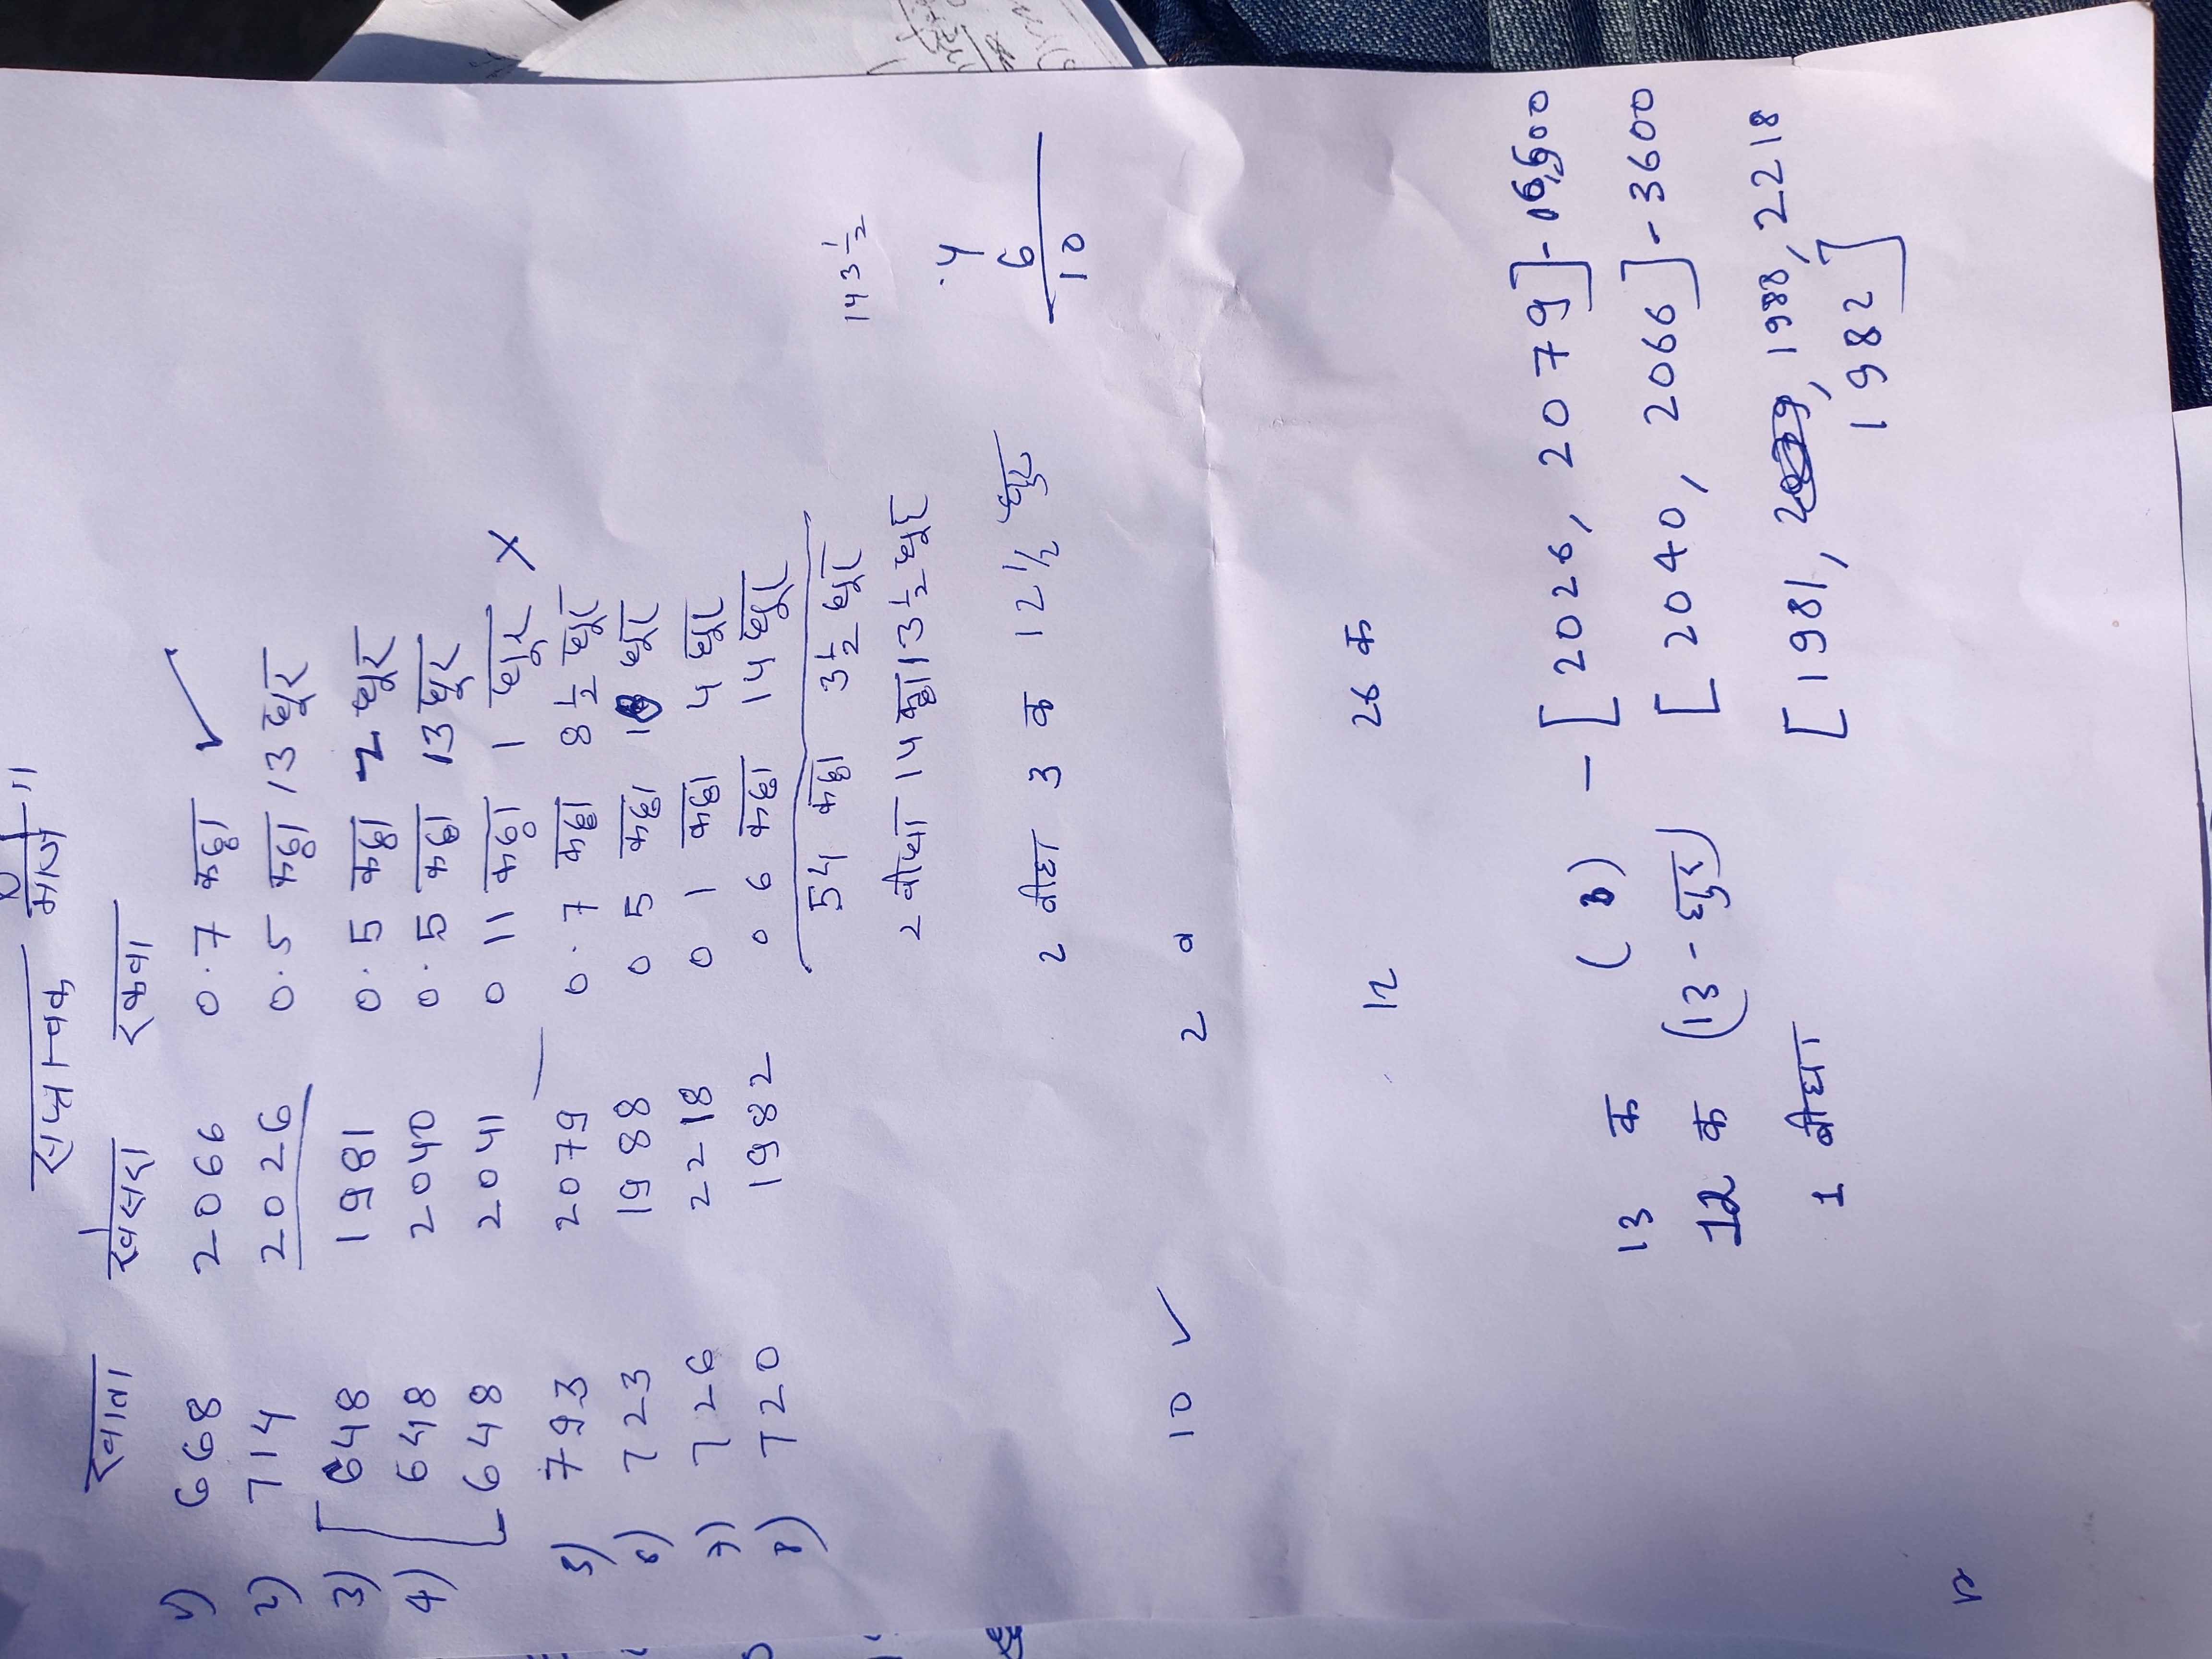 मौजे"
खाता खेसरा रकवा
1) 668 2066 0.7 कट्ठा ✓
2) 714 2026 0.5 कट्ठा 13 धूर
3) 648 1981 0.5 कट्ठा 2 धूर
4) 648 2040 0.5 कट्ठा 13 धूर
648 2041 0 11 कट्ठा 1 धूर X
5) 793 2079 0.7 कट्ठा 8 1/2 धूर
6) 723 1988 0 5 कट्ठा धूर
7) 726 2218 0 1 कट्ठा 4 धूर
8) 720 1982 0 6 कट्ठा 14 धूर
54 कट्ठा 3 1/2 धूर
143 1/2
2 बीघा 14 कट्ठा 13 1/2 धूर
4
2 वीघा 3 क 12 1/2 धुर
6
10
10 ✓ 2 व
12 26 क
13 क - [2026, 2079] -
12 क (13 - धुर) [2040, 2066] - 3600
1 बीघा [1981, 1988, 2218
1982]